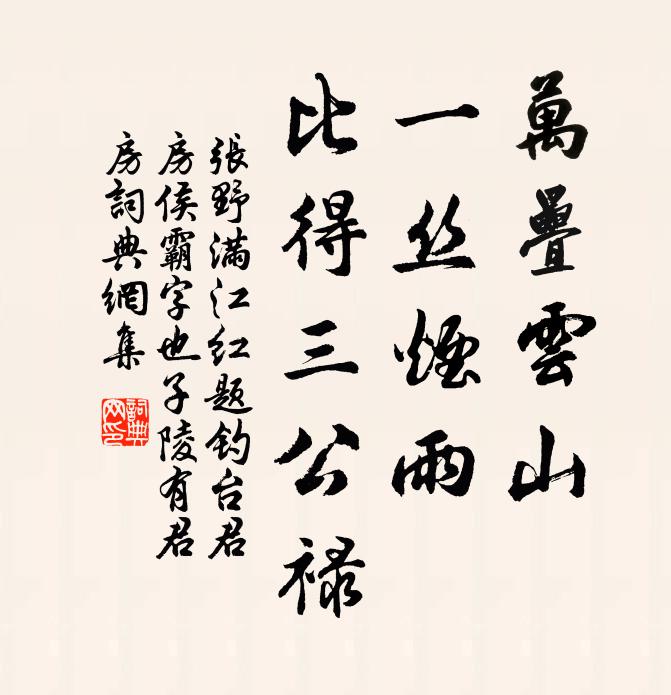 萬疊雲山
一丝煙雨
比得三公禄
張野满江红题钓台君
房侯霸字也子陵有君
房詞典網集
詞典网印